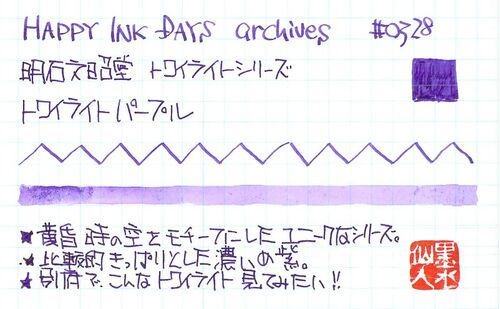 HAPPY INK DAYS archives #0328
明石文昭堂 トワイライトシリーズ
トワイライトパープル
★黄昏時の空をモチーフにしたユニークなシリーズ。
★比較的きっぱりとした濃いめ紫。
★別府で、こんなトワイライト見てみたい!!
墨水仙人